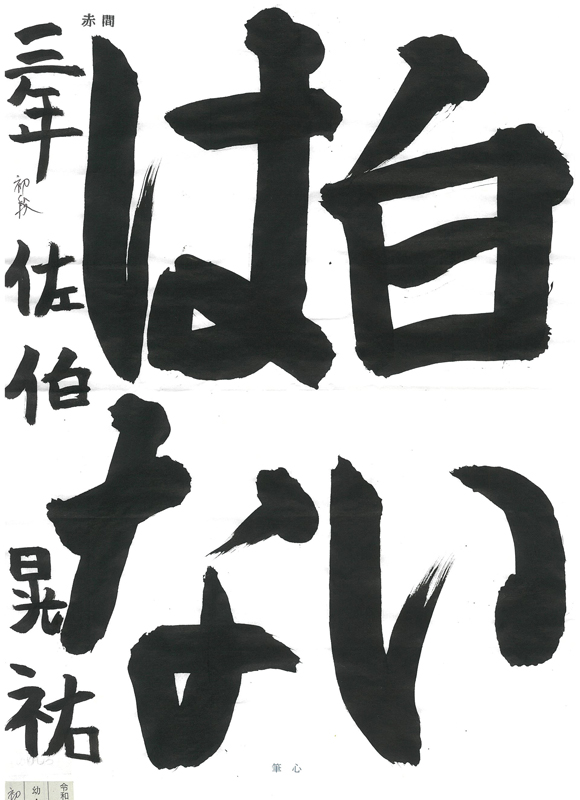 白い
はな
赤間
三年 初段 佐伯 晃祐
心筆
令和
幼・
初